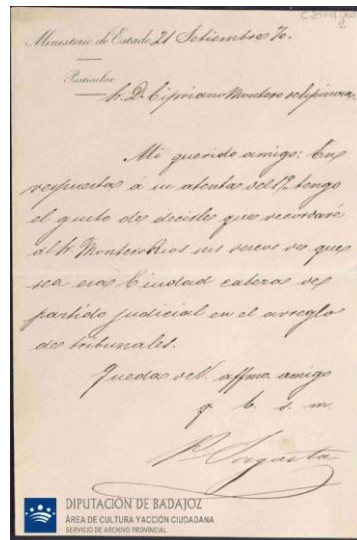 Ministerio de Estado 21 Setiembre 70.
Particular
Sr. D. Cipriano Montero de Espinosa.
Mi querido amigo: En
respuesta á su atenta del 17, tengo
el gusto de decirle que recordaré
al Sr. Montero Rios sus deseos de que
sea esa Ciudad cabeza de
partido judicial en el arreglo
de tribunales.
Queda de V. affmo. amigo
q. b. s. m.
P. Sagasta
DIPUTACIÓN DE BADAJOZ
ÁREA DE CULTURA Y ACCIÓN CIUDADANA
SERVICIO DE ARCHIVO PROVINCIAL